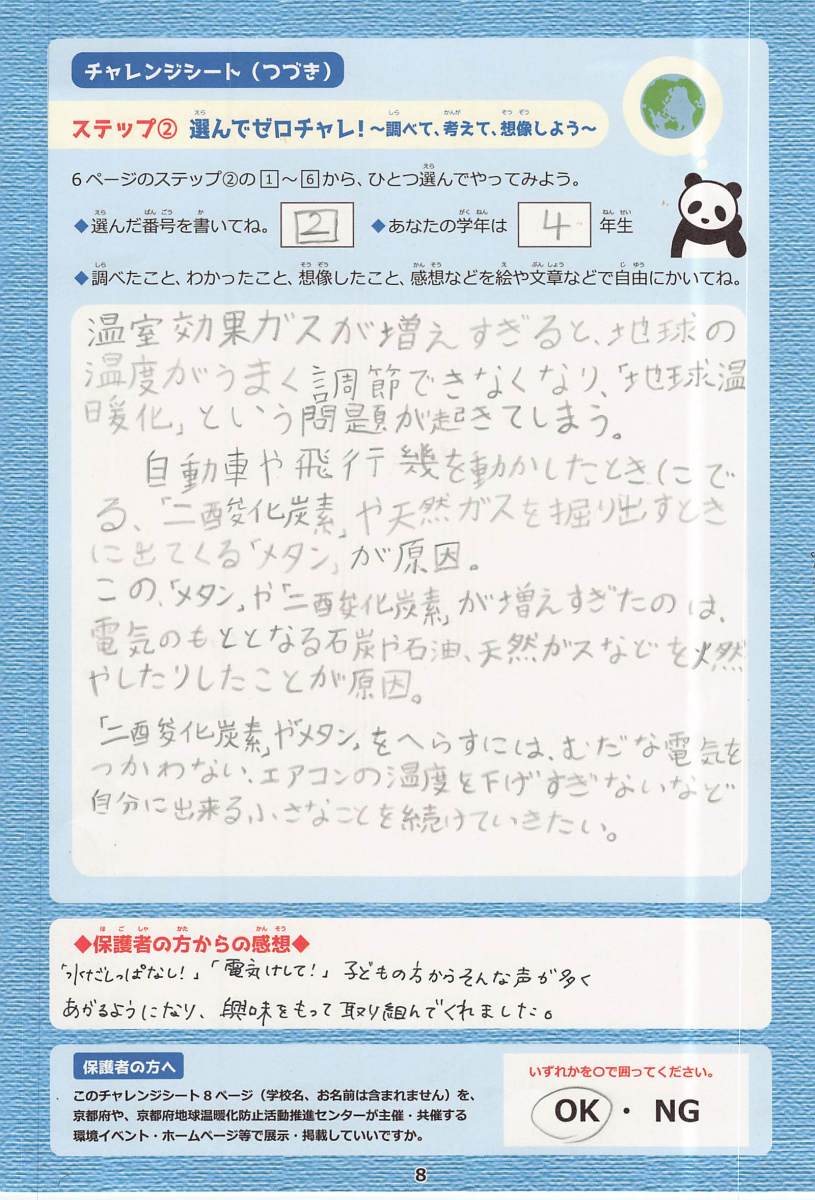 チャレンジシート（つづき）
ステップ② 選んでゼロチャレ！～調べて、考えて、想像しよう～
6ページのステップ②の1～6から、ひとつ選んでやってみよう。
◆選んだ番号を書いてね。 2 ◆あなたの学年は 4 年生
◆調べたこと、わかったこと、想像したこと、感想などを絵や文章などで自由にかいてね。
温室効果ガスが増えすぎると、地球の
温度がうまく調節できなくなり、「地球温
暖化」という問題が起きてしまう。
自動車や飛行幾を動かしたときにで
る、「二酸化炭素」や天然ガスを掘り出すとき
に出てくる「メタン」が原因。
この、「メタン」や「二酸化炭素」が増えすぎたのは、
電気のもととなる石炭や石油、天然ガスなどを燃
やしたりしたことが原因。
「二酸化炭素」や「メタン」をへらすには、むだな電気を
つかわない、エアコンの温度を下げすぎないなど
自分に出来る小さなことを続けていきたい。
◆保護者の方からの感想◆
「水だしっぱなし！」「電気けして！」子どもの方からそんな声が多く
あがるようになり、興味をもって取り組んでくれました。
保護者の方へ
このチャレンジシート8ページ（学校名、お名前は含まれません）を、
京都府や、京都府地球温暖化防止活動推進センターが主催・共催する
環境イベント・ホームページ等で展示・掲載していいですか。
いずれかを○で囲ってください。
OK ・ NG
8